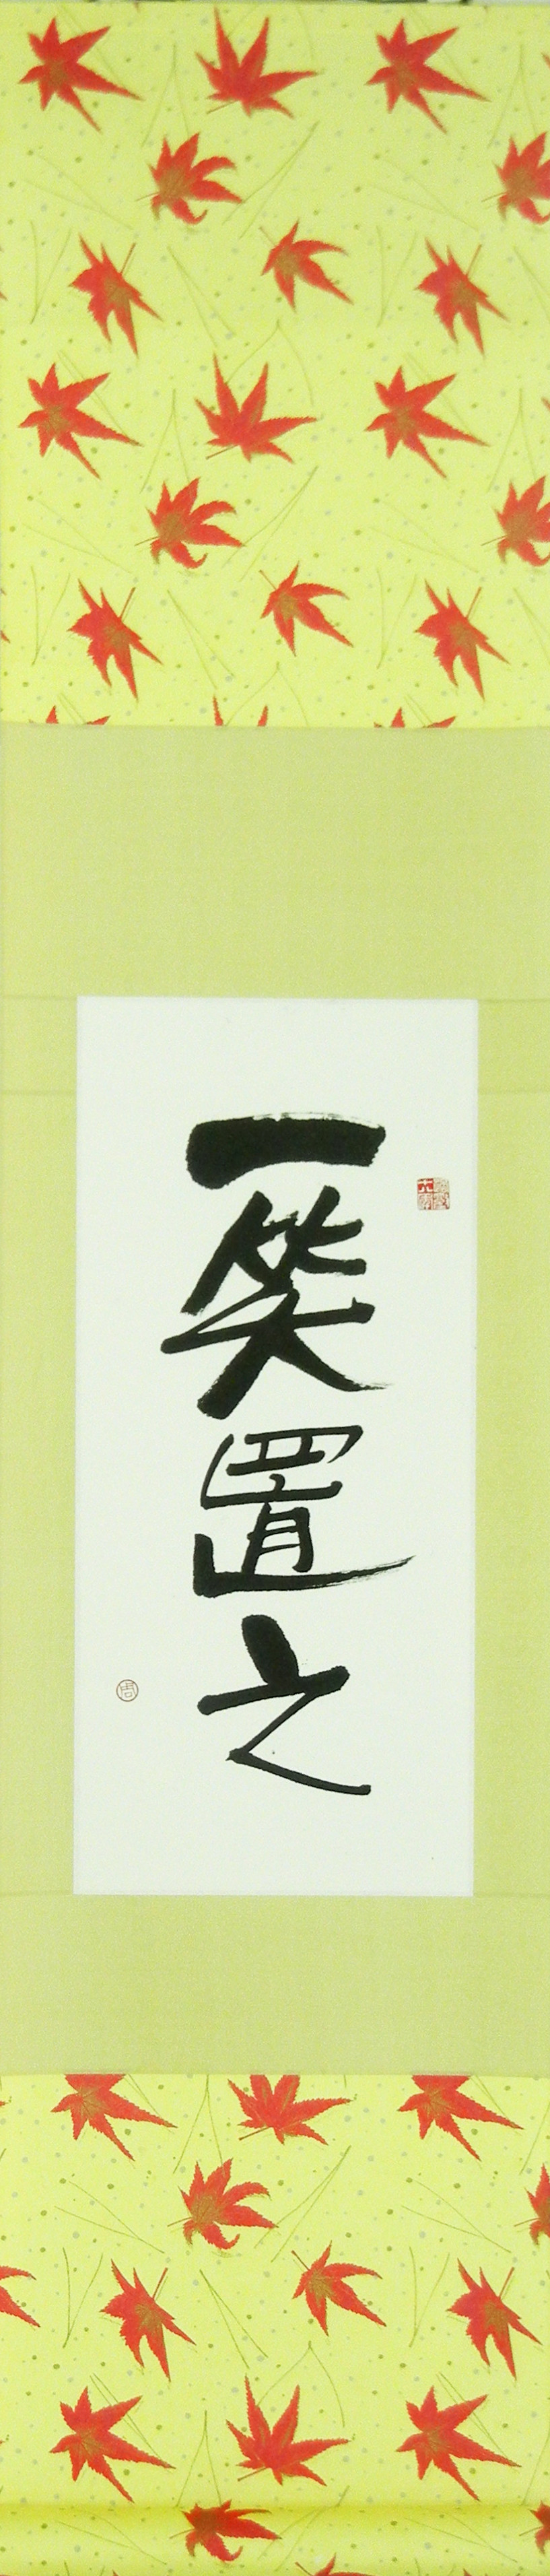 一笑置之